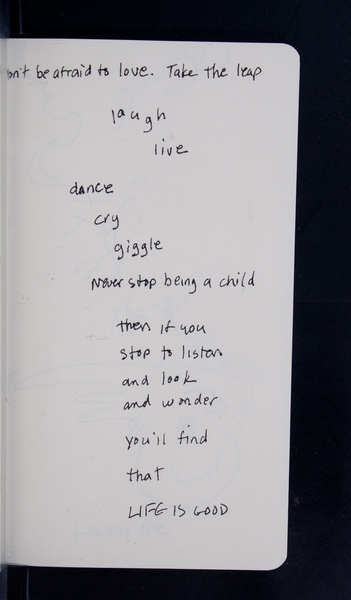 on't be afraid to love. Take the leap
laugh
live
dance
cry
giggle
Never stop being a child
then if you
stop to listen
and look
and wonder
you'll find
that
LIFE IS GOOD